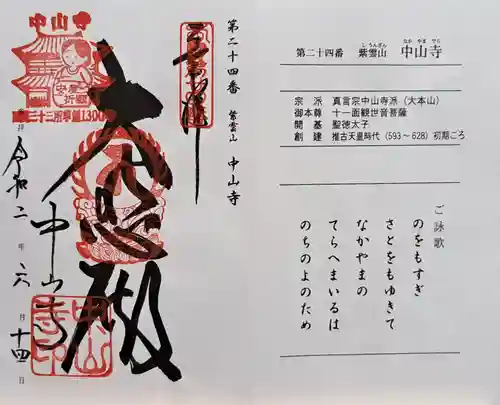 第二十四番 紫雲山 中山寺
奉拝
大悲殿
中山寺
令和二年六月十四日
中山寺
安産祈願
中山寺印
第二十四番 紫雲山 中山寺
しうんざん
なかやまでら
宗派 真言宗中山寺派（大本山）
御本尊 十一面観世音菩薩
開基 聖徳太子
創建 推古天皇時代（593～628）初期ごろ
ご詠歌
のをもすぎ
さとをもゆきて
なかやまの
てらへまいるは
のちのよのため